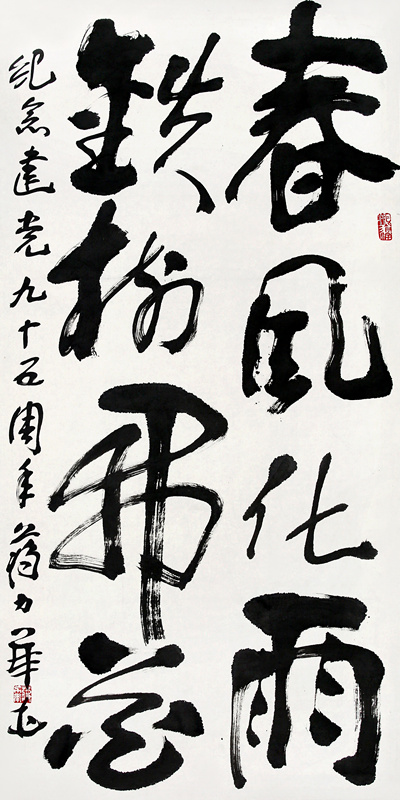 春風化雨
鉄樹開花
紀念建党九十五周年蒋力華书